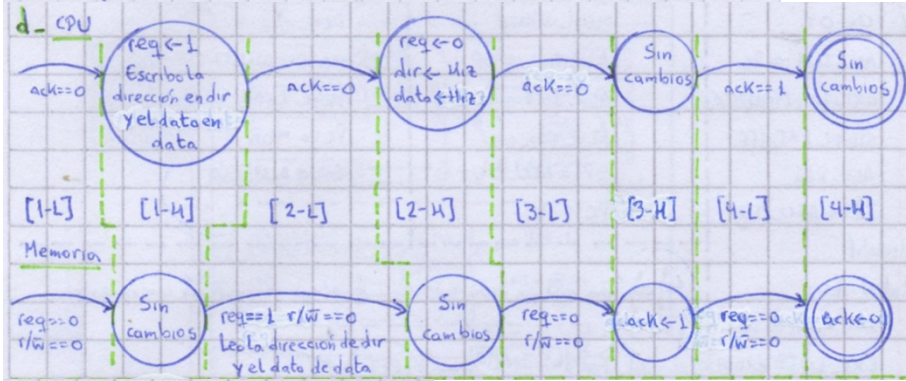 d_ CPU
ack==0
req<-1
Escribo la
dirección en dir
y el dato en
data
ack==0
req<-0
dir<- Hiz
data<-Hiz
ack==0
Sin
cambios
ack==1
Sin
cambios
[1-L] [1-H] [2-L] [2-H] [3-L] [3-H] [4-L] [4-H]
Memoria
req==0
r/w̅==0
Sin
cambios
req==1 r/w̅==0
Leo la dirección de dir
y el dato de data
Sin
cambios
req==0
r/w̅==0
ack<-1
req==0
r/w̅==0
ack<-0